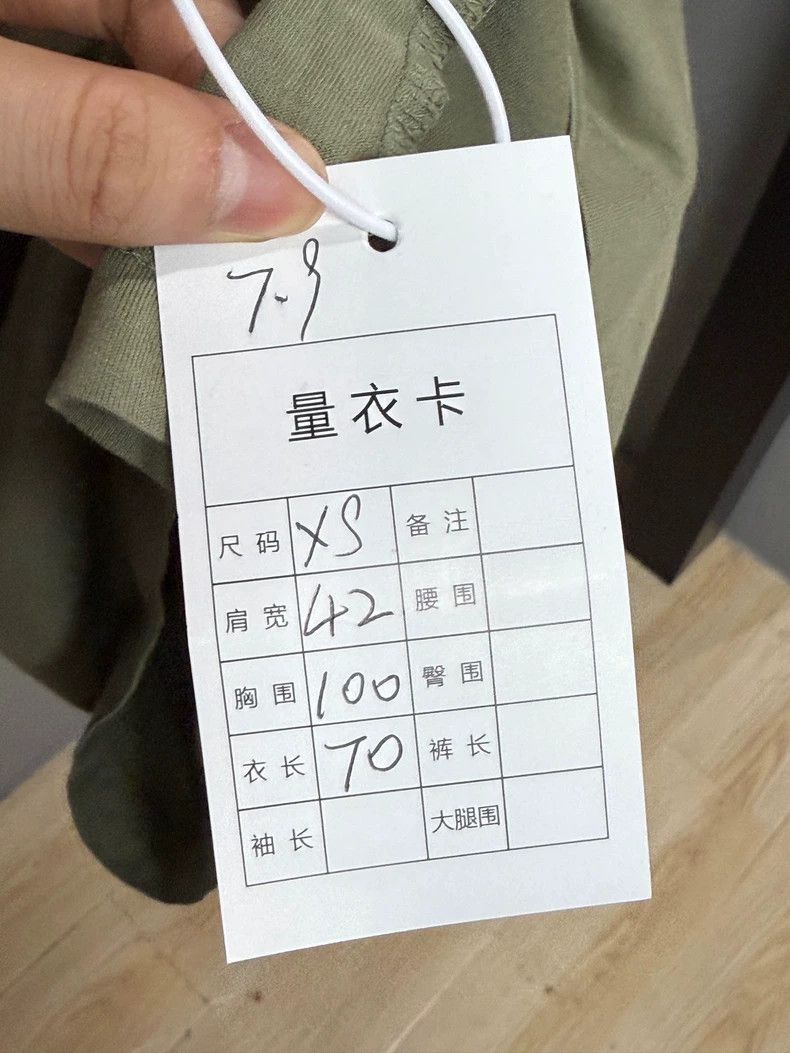 7.9
量衣卡
尺码 XS 备注
肩宽 42 腰围
胸围 100 臀围
衣长 70 裤长
袖长 大腿围